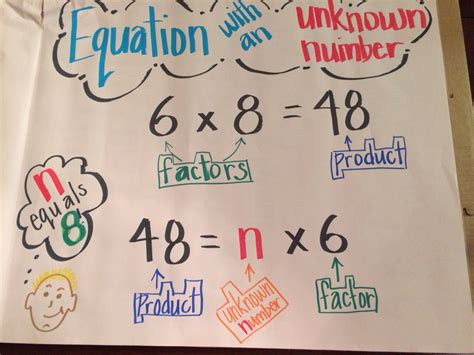 Equation with an unknown number
6 x 8 = 48
factors
product
n
equals
8
48 = n x 6
product
unknown
number
factor